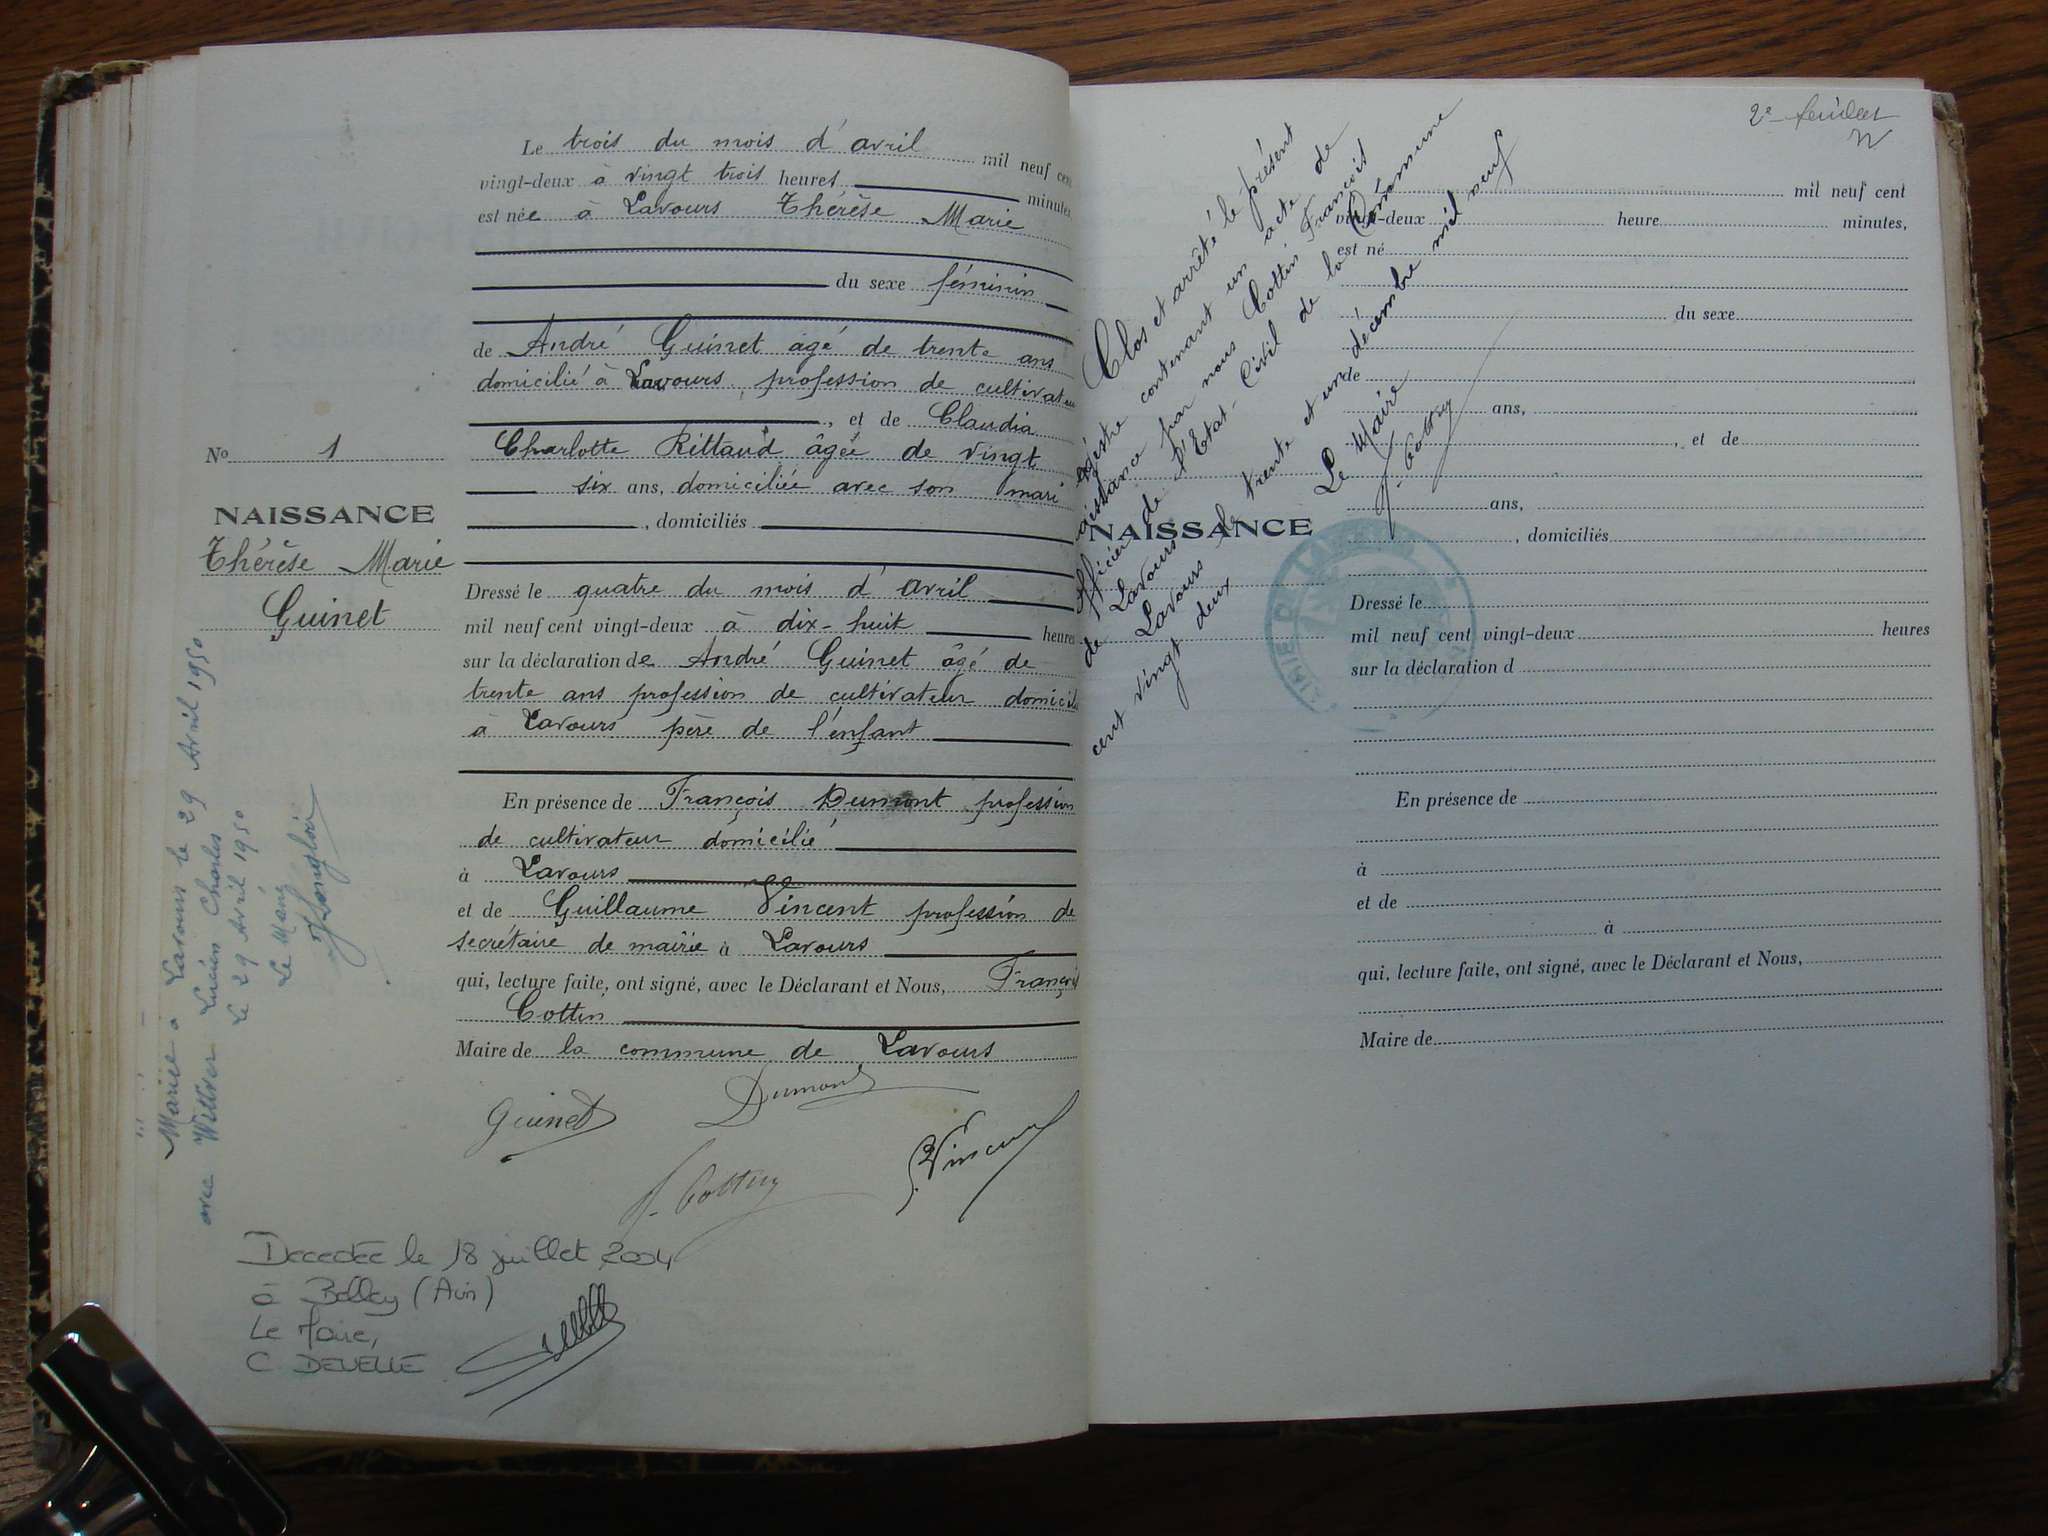 Le trois du mois d'avril mil neuf cent
vingt-deux à vingt trois heures minutes
est née à Lavours Thérèse Marie
du sexe féminin
de André Guinet âgé de trente ans
domicilié à Lavours, profession de cultivateur
, et de Claudia
Charlotte Rittaud âgée de vingt
six ans, domiciliée avec son mari
, domiciliés
Dressé le quatre du mois d'avril
mil neuf cent vingt-deux à dix-huit heures
sur la déclaration de André Guinet âgé de
trente ans profession de cultivateur domicilié
à Lavours père de l'enfant
En présence de François Dumont profession
de cultivateur domicilié
à Lavours
et de Guillaume Vincent profession de
secrétaire de mairie à Lavours
qui, lecture faite, ont signé, avec le Déclarant et Nous, François
Cottin
Maire de la commune de Lavours
Guinet Dumont
F. Cottin G. Vincent
No 1
NAISSANCE
Thérèse Marie
Guinet
Mariée à Lavours le 29 Avril 1950
avec Lucien Charles
Le 29 Avril 1950
Le Maire
Décédée le 18 juillet 2004
à Belley (Ain)
Le Maire,
C DEVELLE
2e feuillet
Clos et arrêté le présent
registre contenant un acte de
naissance par nous Cottin François
Officier de l'Etat-Civil de la Commune
de Lavours
Lavours le trente et un décembre mil neuf
cent vingt deux
Le Maire
F. Cottin
mil neuf cent
vingt-deux heure minutes,
est né
du sexe
de
ans,
, et de
ans,
NAISSANCE
, domiciliés
Dressé le
mil neuf cent vingt-deux heures
sur la déclaration d
En présence de
à
et de
à
qui, lecture faite, ont signé, avec le Déclarant et Nous,
Maire de